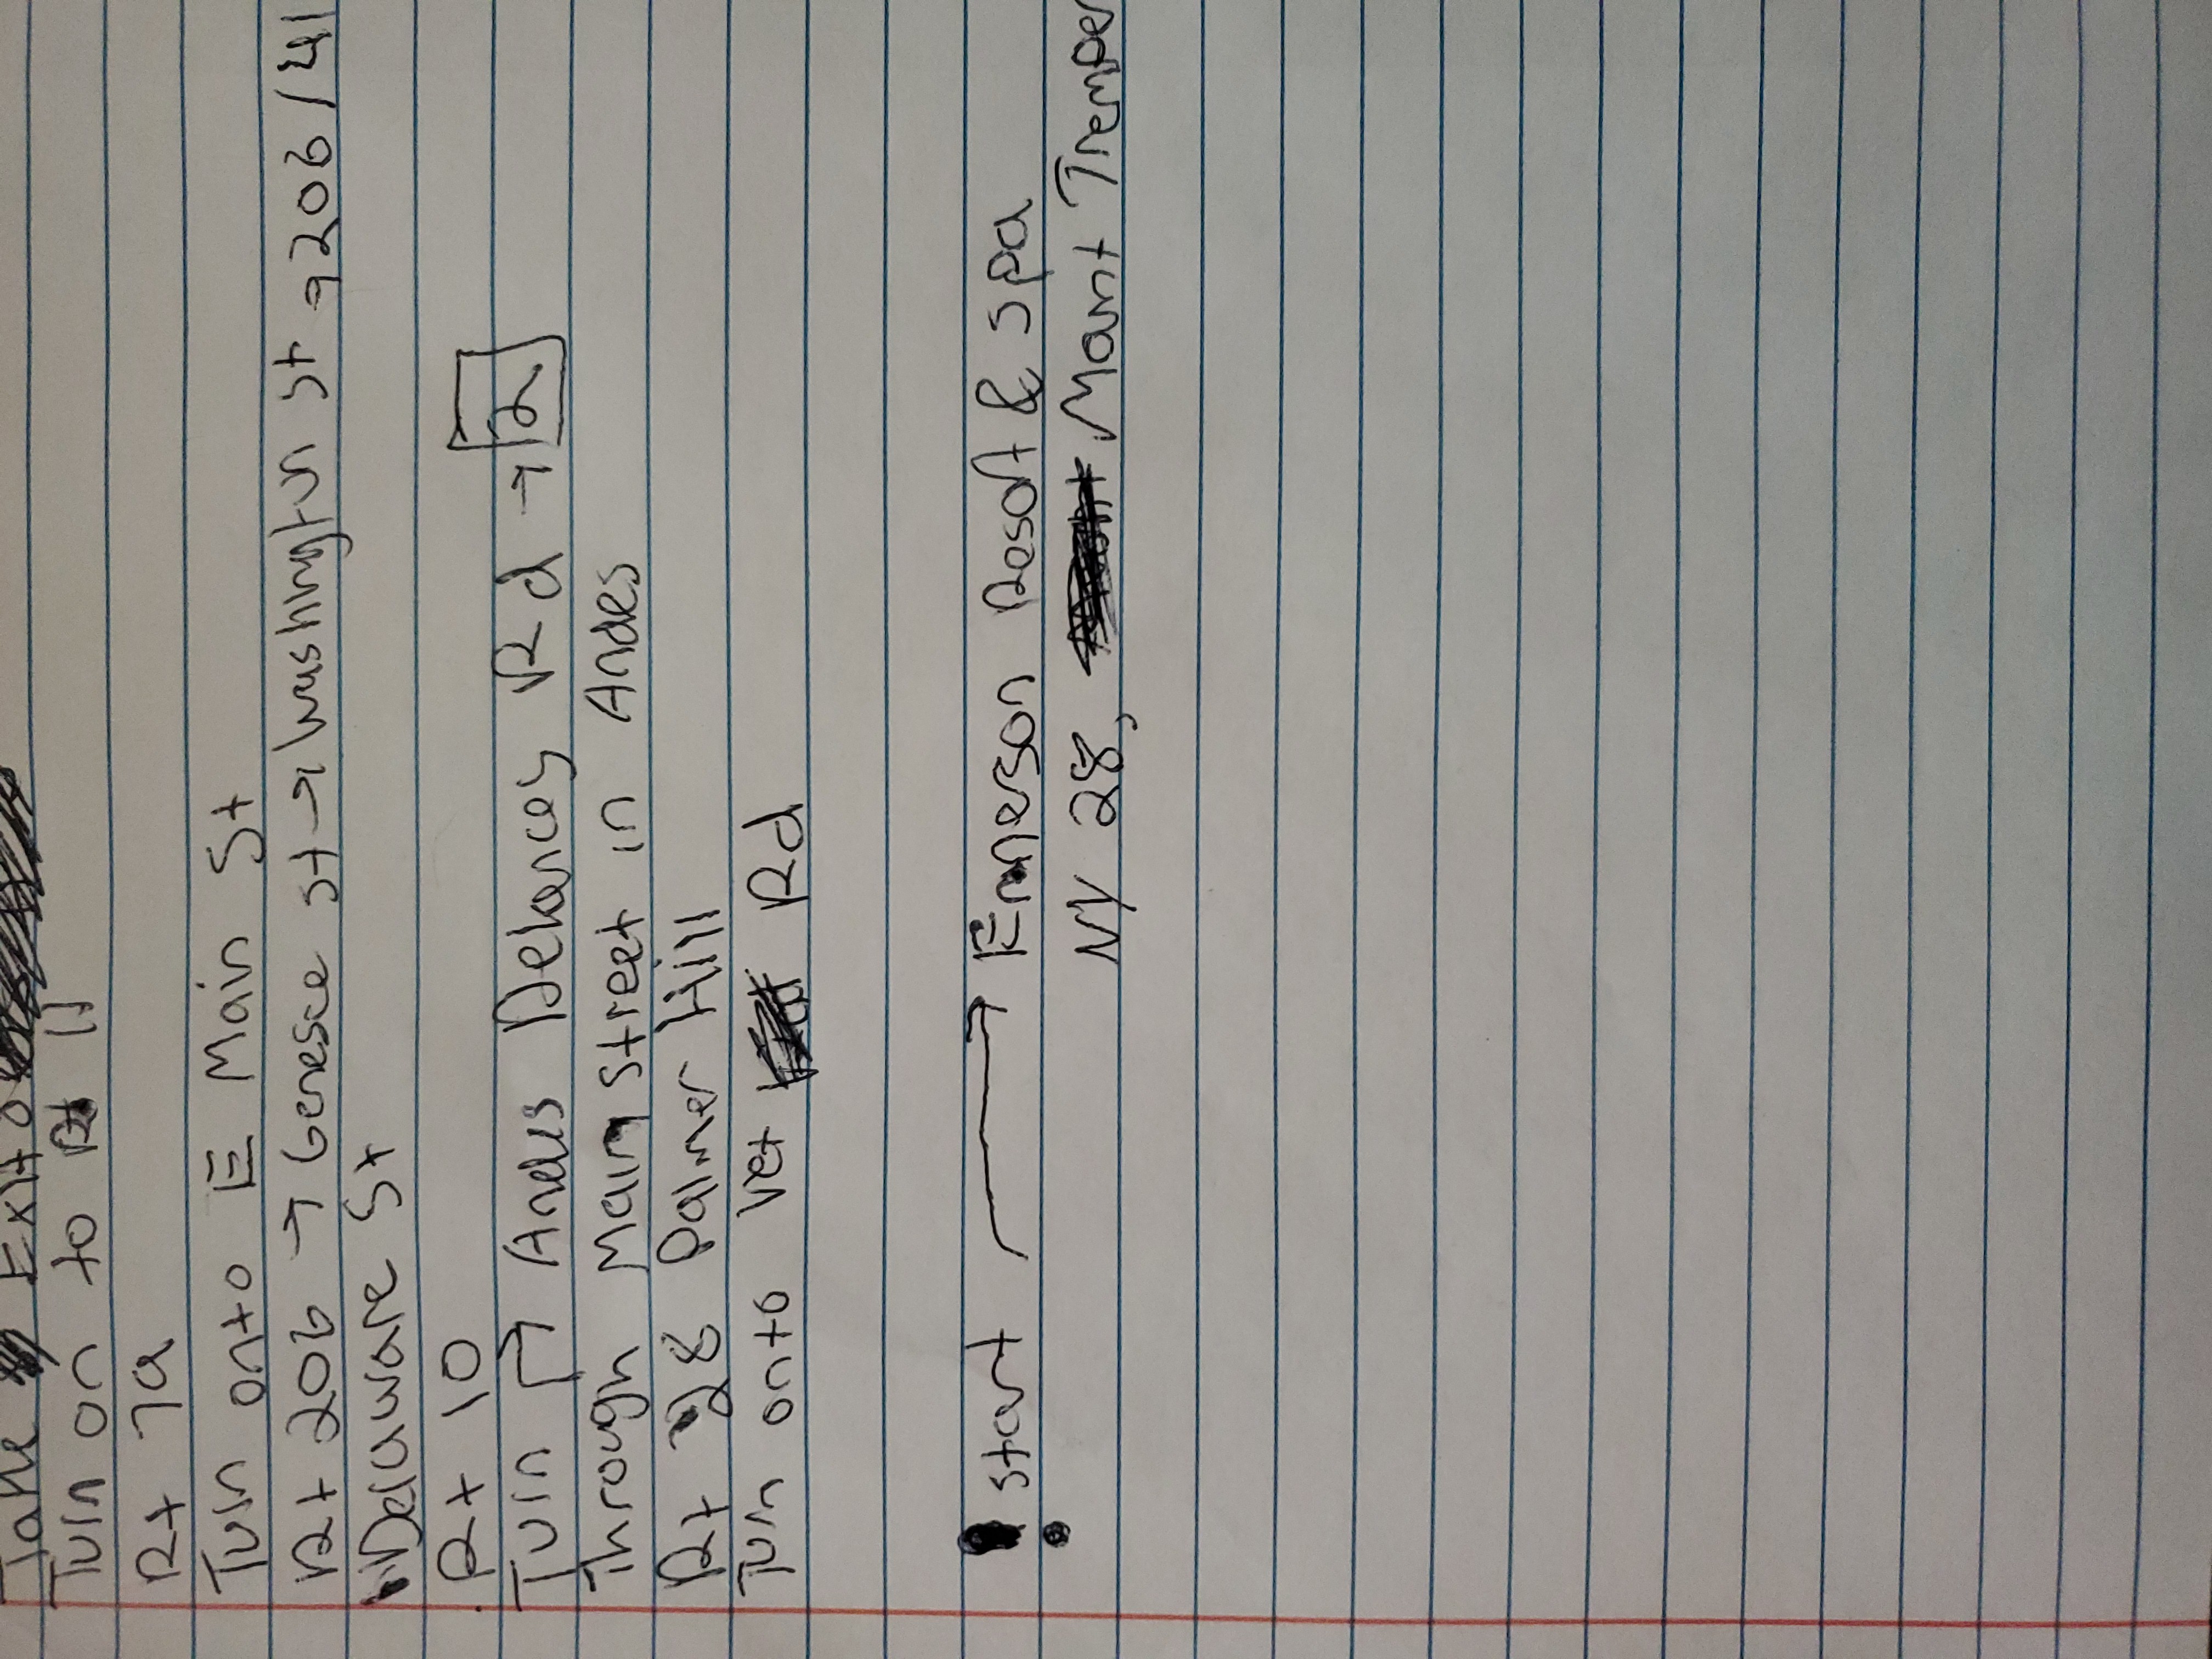 Take Exit 8
Turn on to Rt 11
Rt 79
Turn onto E Main St
Rt 206 → Genesee St → Washington St → 206/41
Delaware St
Rt 10
Turn Andes Delancey Rd → 2
Through Main Street in Andes
Rt 28 Palmer Hill
Turn onto Vet Rd
! start → Emerson Resort & Spa
NY 28, Mount Tremper